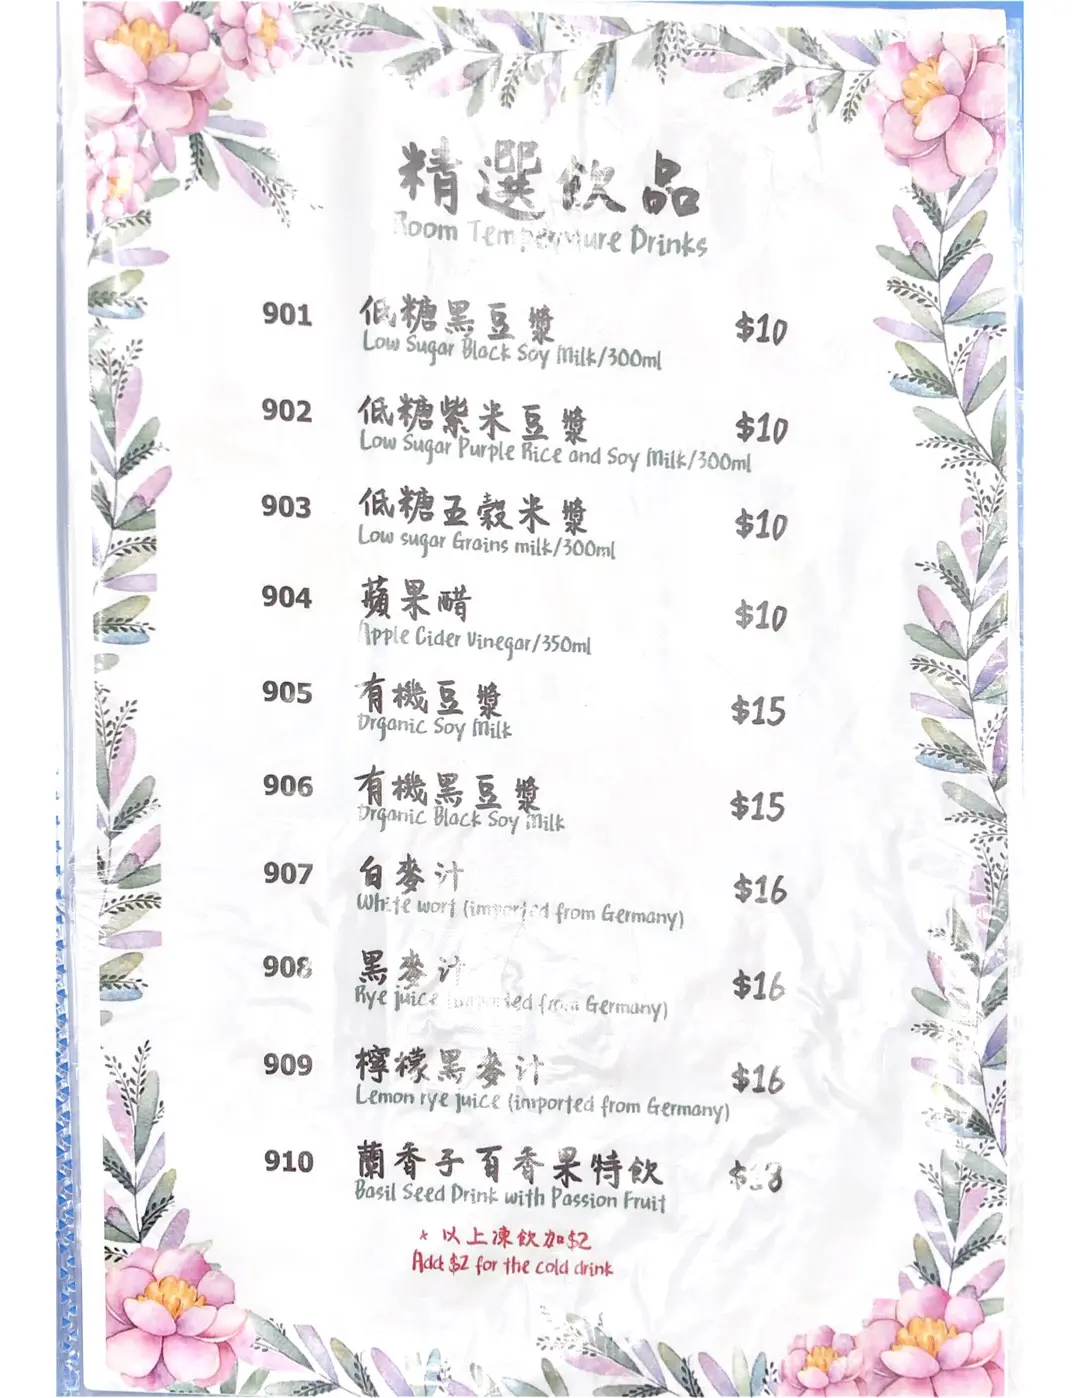 精選飲品
Room Temperature Drinks
901 低糖黑豆漿 $10
Low Sugar Black Soy Milk/300ml
902 低糖紫米豆漿 $10
Low Sugar Purple Rice and Soy Milk/300ml
903 低糖五穀米漿 $10
Low sugar Grains milk/300ml
904 蘋果醋 $10
Apple Cider Vinegar/350ml
905 有機豆漿 $15
Organic Soy Milk
906 有機黑豆漿 $15
Organic Black Soy Milk
907 白麥汁 $16
White wort (imported from Germany)
908 黑麥汁 $16
Rye juice (imported from Germany)
909 檸檬黑麥汁 $16
Lemon rye juice (imported from Germany)
910 蘭香子百香果特飲
Basil Seed Drink with Passion Fruit
* 以上凍飲加$2
Add $2 for the cold drink